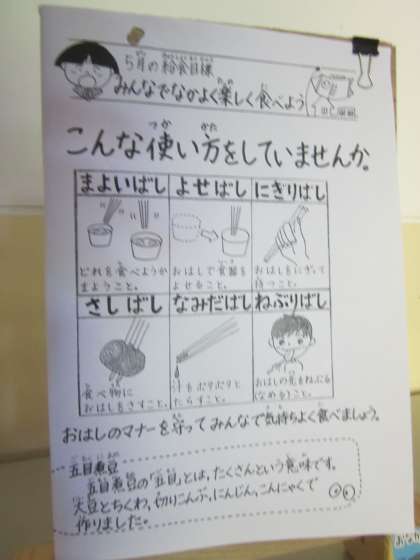 5月の給食目標
みんなでなかよく楽しく食べよう
こんな使い方をしていませんか。
まよいばし よせばし にぎりばし
どれを食べようか
まようこと。
おはしで食器を
よせること。
おはしをにぎって
持つこと。
さしばし なみだばし ねぶりばし
食べ物に
おはしをさすこと。
汁をポタポタと
たらすこと。
おはしの先をねぶる
(なめる)こと。
おはしのマナーを守ってみんなで気持ちよく食べましょう。
五目煮豆
五目煮豆の「五目」とは、たくさんという意味です。
大豆とちくわ、切りこんぶ、にんじん、こんにゃくで
作りました。